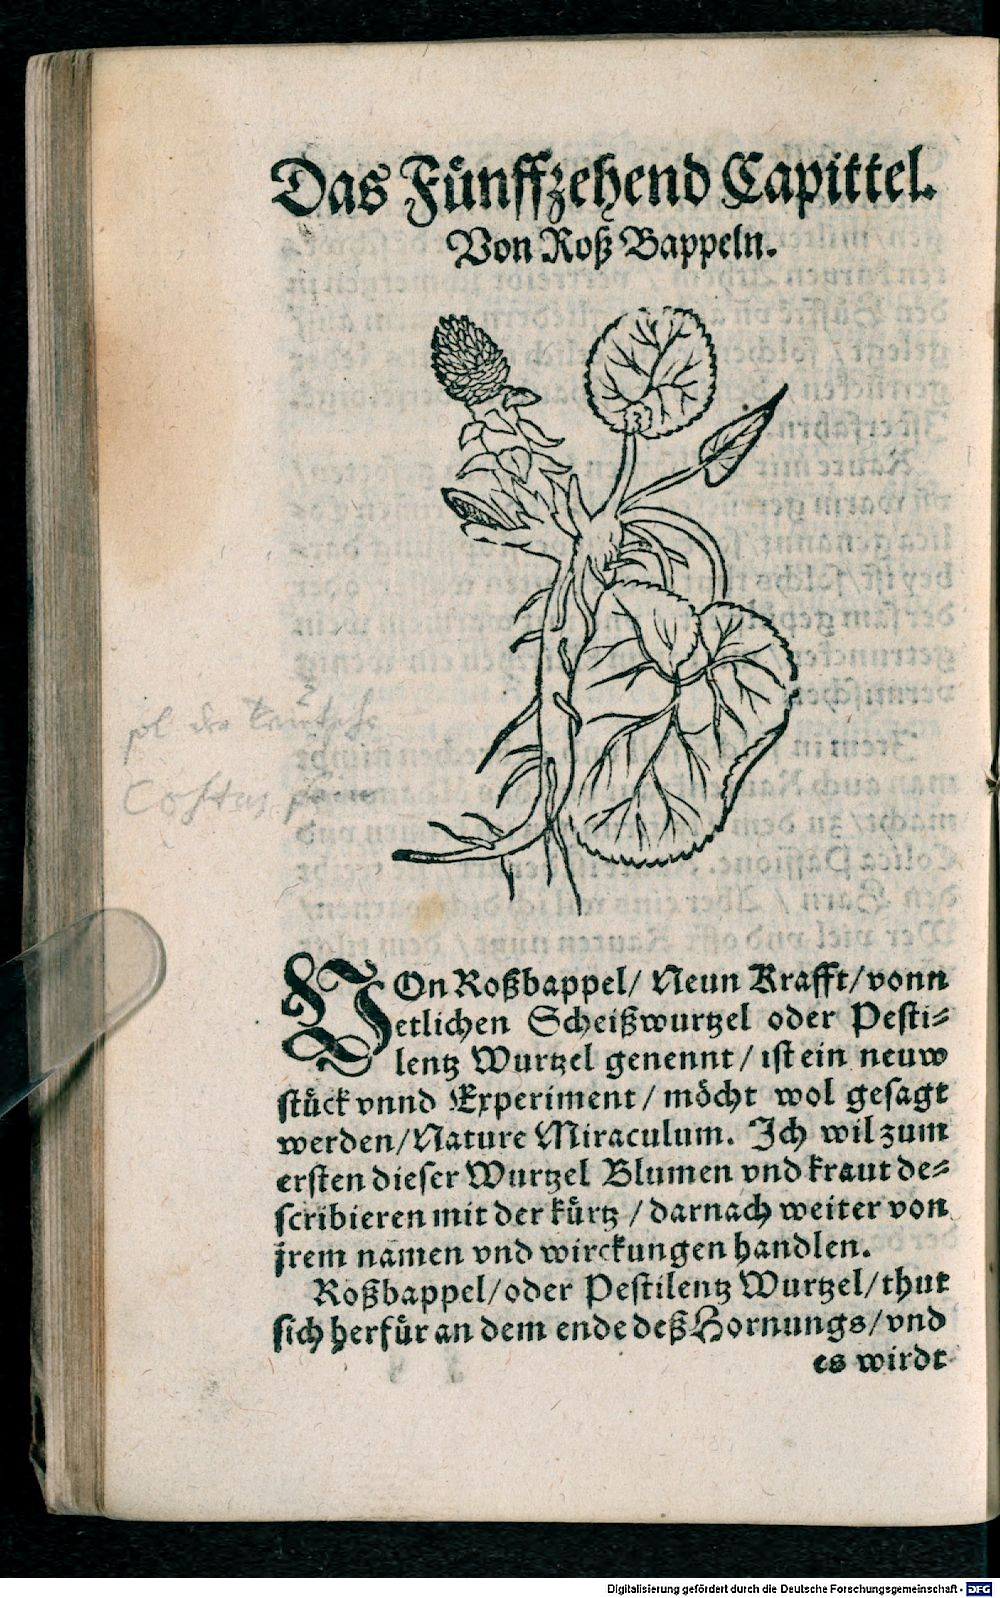 Das Fünffzehend Capittel.
Von Roß Bappeln.
sol der
Costus
VOn Roßbappel/ Neun Krafft/vonn
etlichen Scheißwurtzel oder Pesti⸗
lentz Wurtzel genennt/ ist ein neuw
stück vnnd Experiment/ möcht wol gesagt
werden/Nature Miraculum. Ich wil zum
ersten dieser Wurtzel Blumen vnd kraut de⸗
scribieren mit der kürtz / darnach weiter von
jrem namen vnd wirckungen handlen.
Roßbappel/oder Pestilentz Wurtzel/thut
sich herfür an dem ende deß Hornungs/vnd
es wirdt
Digitalisierung gefördert durch die Deutsche Forschungsgemeinschaft - DFG